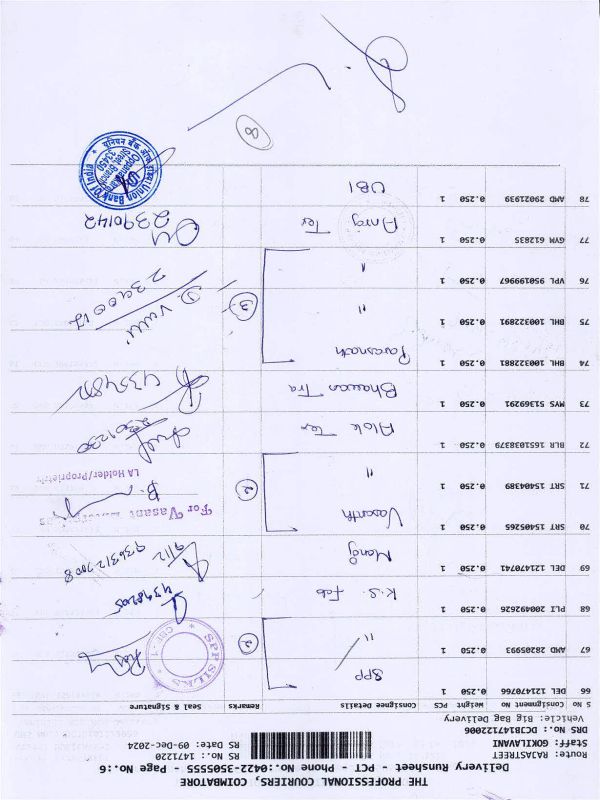 THE PROFESSIONAL COURIERS, COIMBATORE
Delivery Runsheet - PCT - Phone No.:0422-3505555 - Page No.:6
Route: RAJASTREET
Staff: GOKILAVANI
DRS No.: DCJB14722006
Vehicle: Big Bag Delivery
RS No.: 1471220
RS Date: 09-Dec-2024
S No Consignment No Weight PCS Consignee Details Remarks Seal & Signature
66 DEL 121720766 0.250 1 SPP
67 AMD 28205993 0.250 1 " 2 SPP SILKS CBE-1
68 PLI 200492692 0.250 1 K.S. Fab
69 DEL 121470741 0.250 1 Manoj
70 SRT 15405265 0.250 1 Vasanth For Vasant
71 SRT 15404389 0.250 1 " 2 LA Holder/Propriety
72 BLR 1651038379 0.250 1 Alok Ter 2301230
73 MYS 51369291 0.250 1 Bhawan Tra 4354812
74 BHL 100322881 0.250 1 Parasnath
75 BHL 100322891 0.250 1 " 3
76 VPL 950199967 0.250 1 "
77 GYM 612835 0.250 1 Anroj Ter 2390142
78 AMD 29021939 0.250 1 UBI
यूनियन बैंक ऑफ इंडिया Union Bank of India
8